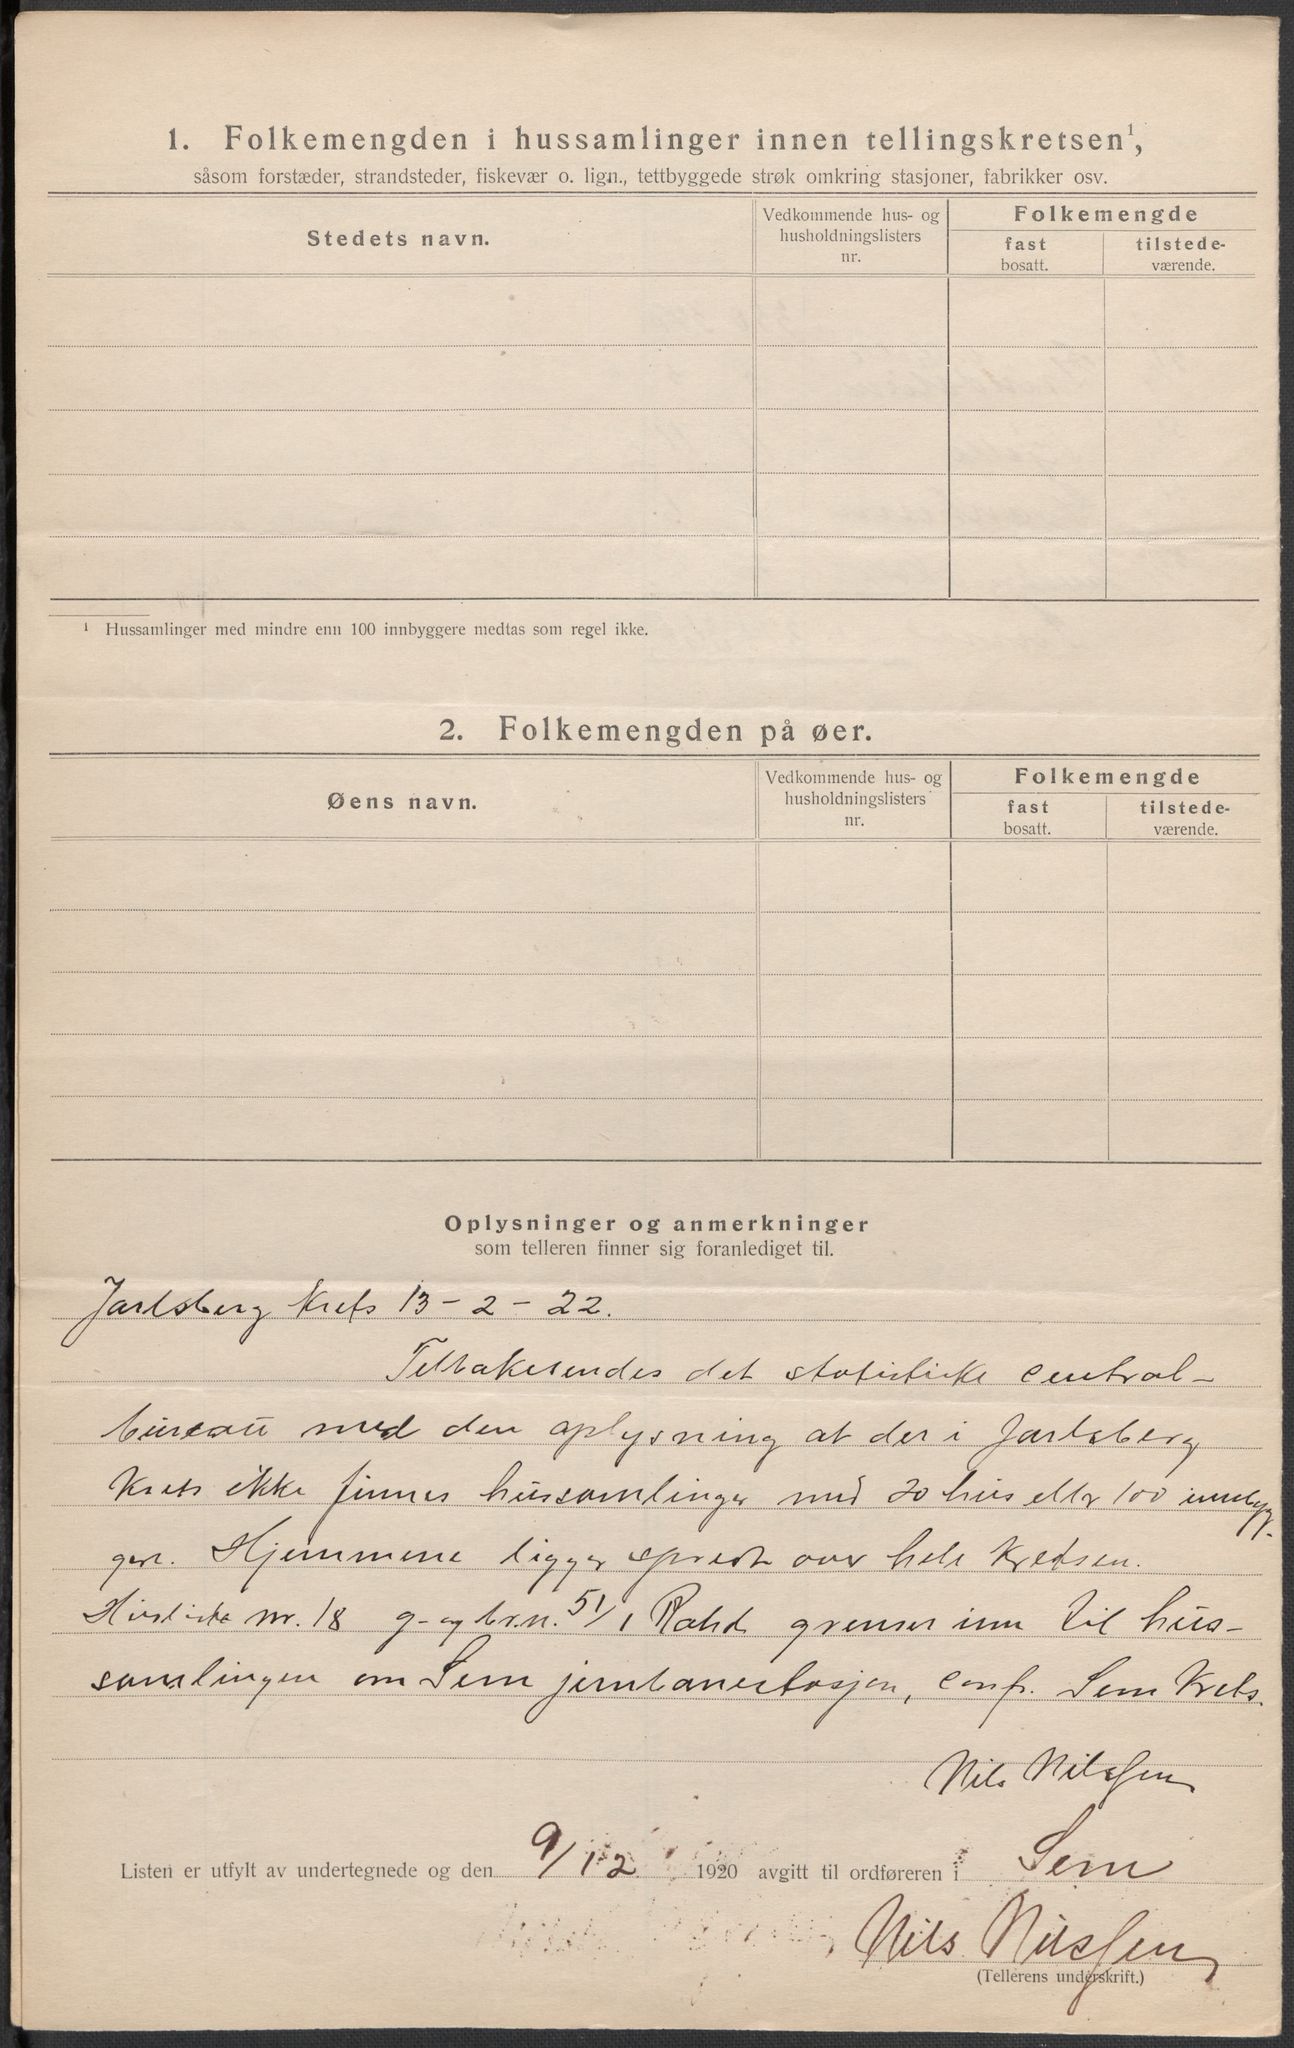 1. Folkemengden i hussamlinger innen tellingskretsen¹,
såsom forstæder, strandsteder, fiskevær o. lign., tettbyggede strøk omkring stasjoner, fabrikker osv.
Stedets navn.
Vedkommende hus- og
husholdningslisters
nr.
Folkemengde
fast
bosatt.
tilstede-
værende.
¹ Hussamlinger med mindre enn 100 innbyggere medtas som regel ikke.
2. Folkemengden på øer.
Øens navn.
Vedkommende hus- og
husholdningslisters
nr.
Folkemengde
fast
bosatt.
tilstede-
værende.
Oplysninger og anmerkninger
som telleren finner sig foranlediget til.
Jarlsberg Krets 13-2-22.
Tilbakesendes det statistiske central-
bureau med den oplysning at der i Jarlsberg
Krets ikke finnes hussamlinger med 20 hus eller 100 innbyg-
gere. Hjemmene ligger spredt over hele Kretsen.
Husliste nr. 18 g- og br.n. 51/1 grenser inn til hus-
samlingen om Sem jernbanestasjon, confr. Sem Krets.
Nils Nilssen
Listen er utfylt av undertegnede og den 9/12 1920 avgitt til ordføreren i Sem
Nils Nilssen
(Tellerens underskrift.)